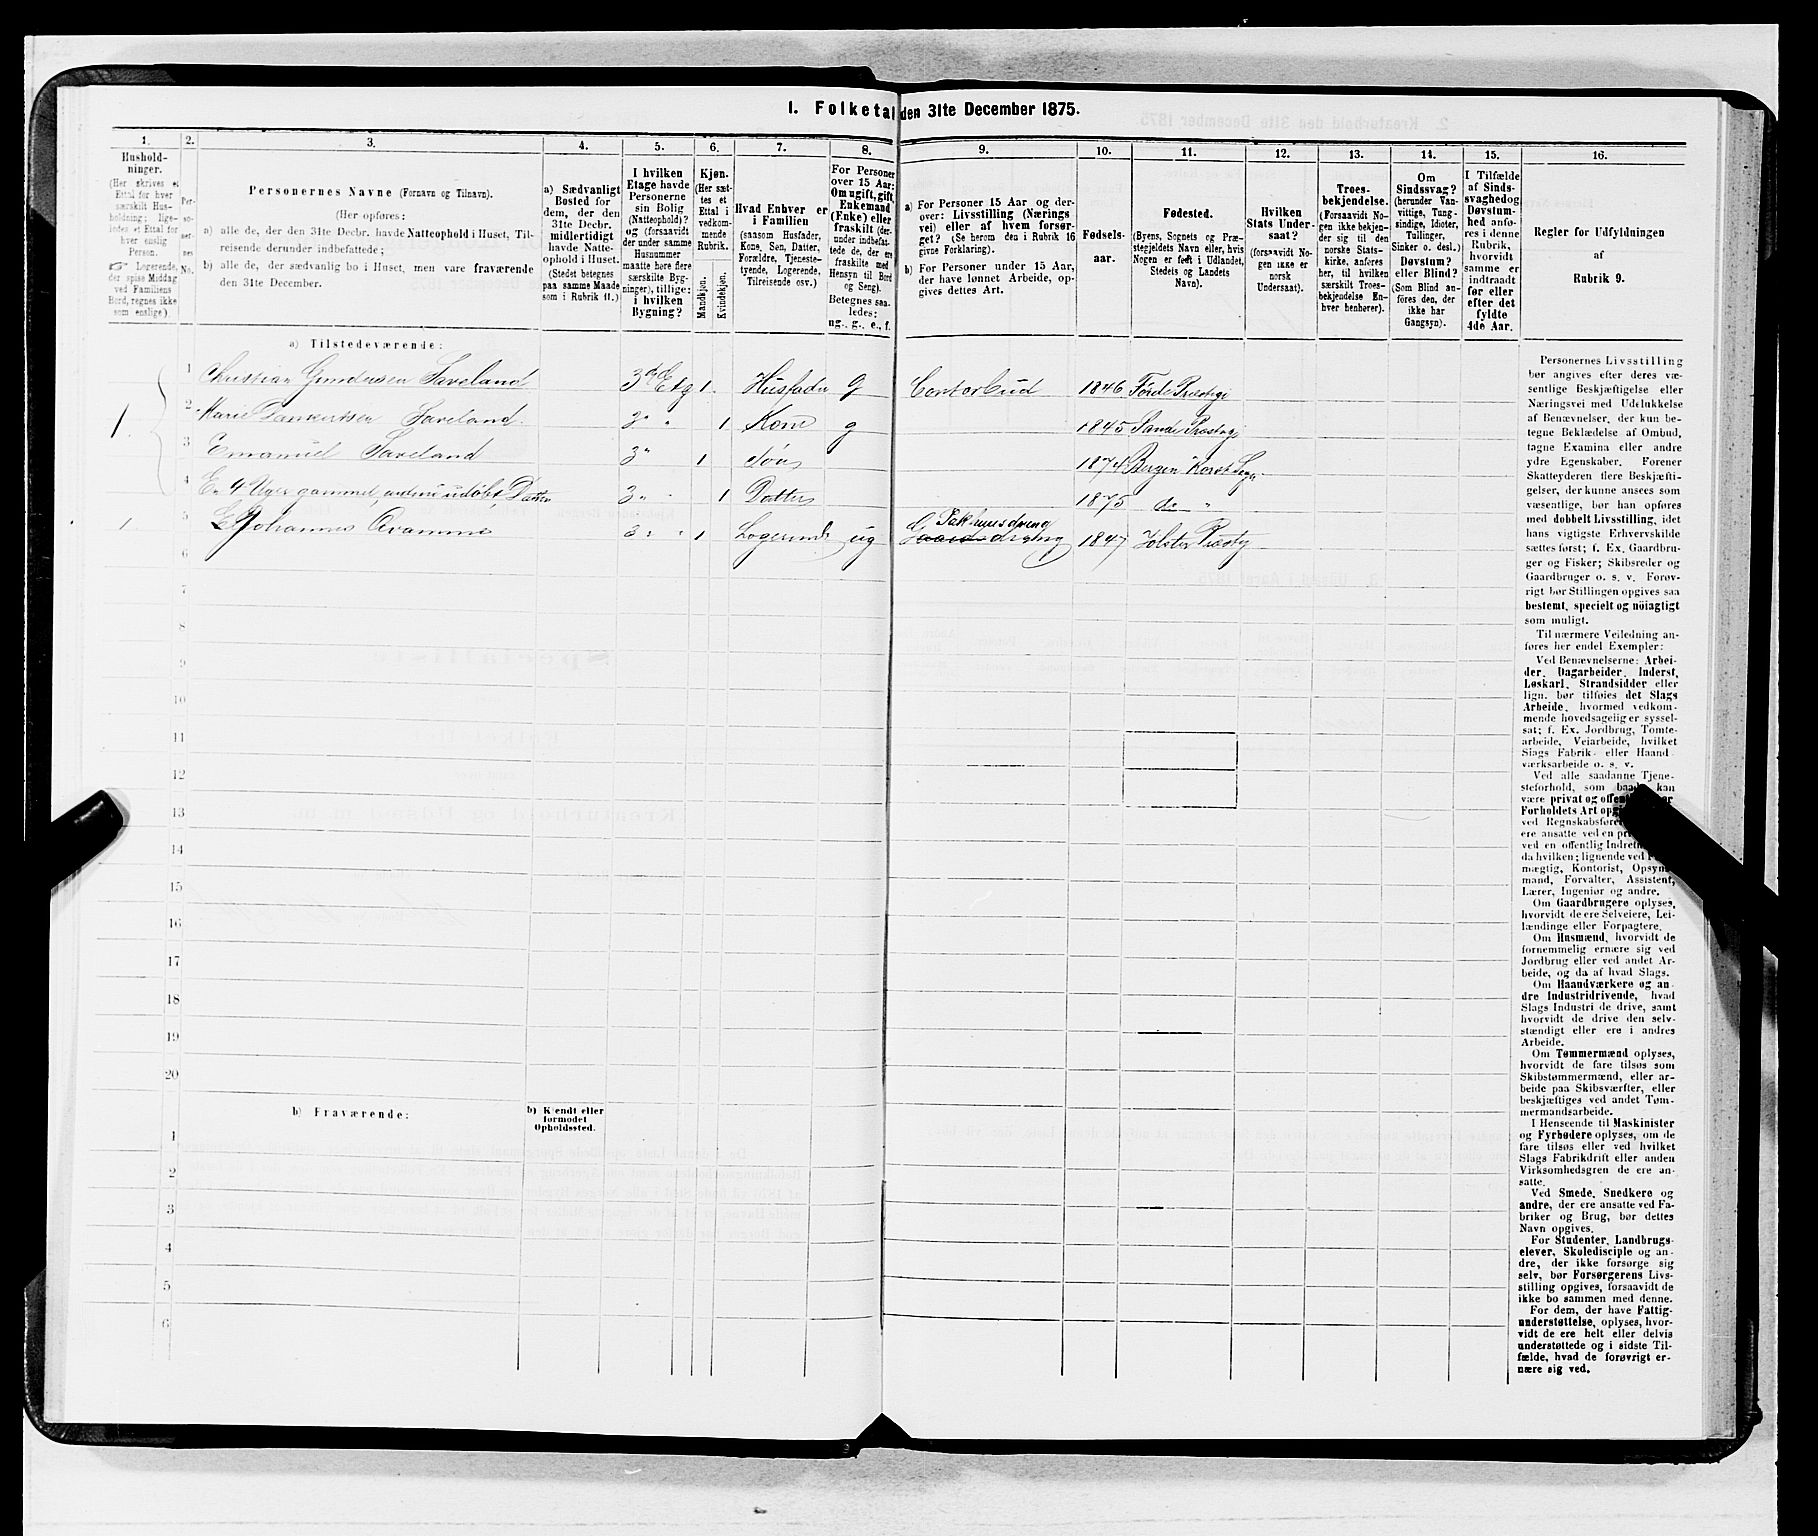 1. Folketal den 31te December 1875.
1. 2. 3. 4. 5. 6. 7. 8. 9. 10. 11. 12. 13. 14. 15. 16.
Hushold-
ninger.
(Her skrives et
Ettal for hver
særskilt Hus-
holdning; lige-
ledes et Ettal for
hver enslig
Person.
☞ Logerende,
der spise Middag
ved Familiens
Bord, regnes ikke
som enslige).
Per-
so-
ner-
nes
No.
Personernes Navne (Fornavn og Tilnavn).
(Her opføres:
a) alle de, der den 31te Decbr. havde Natteophold i Huset, Til-
reisende derunder indbefattede;
b) alle de, der sædvanlig bo i Huset, men vare fraværende
den 31te December.
a) Sædvanligt
Bosted for
dem, der den
31te Decbr.
midlertidigt
havde Natte-
ophold i Huset.
(Stedet betegnes
paa samme Maade
som i Rubrik 11.)
I hvilken
Etage havde
Personerne
sin Bolig
(Natteophold)?
og (forsaavidt
der under samme
Husnummer
maatte høre flere
særskilte Byg-
ninger), tillige:
i hvilken
Bygning?
Kjøn.
(Her sæt-
tes et
Ettal i
vedkom-
mende
Rubrik.
Mandkjøn.
Kvindekjøn.
Hvad Enhver er
i Familien
(saasom Husfader,
Kone, Søn, Datter,
Forældre, Tjeneste-
tyende, Logerende,
Tilreisende osv.)
For Personer
over 15 Aar:
Om ugift, gift,
Enkemand
(Enke) eller
fraskilt (der-
under indbefat-
tede de, der ere
fraskilte med
Hensyn til Bord
og Seng).
Betegnes saa-
ledes:
ug., g., e., f.
a) For Personer 15 Aar og der-
over: Livsstilling (Nærings-
vei) eller af hvem forsør-
get? (Se herom den i Rubrik 16
givne Forklaring).
b) For Personer under 15 Aar,
der have lønnet Arbeide, op-
gives dettes Art.
Fødsels-
aar.
Fødested.
(Byens, Sognets og Præ-
stegjeldets Navn eller, hvis
Nogen er født i Udlandet,
Stedets og Landets
Navn).
Hvilken
Stats Under-
saat?
(forsaavidt No-
gen ikke er
norsk
Undersaat).
Troes-
bekjendelse.
(Forsaavidt No-
gen ikke bekjen-
der sig til den
norske Stats-
kirke, anføres
her, til hvilken
særskilt Troes-
bekjendelse En-
hver henhører).
Om
Sindssvag?
(herunder Van-
vittige, Tung-
sindige, Idioter,
Tullinger,
Sinker o. desl.)
Døvstum?
eller Blind?
(Som Blind an-
føres den, der
ikke har
Gangsyn).
I Tilfælde
af Sinds-
svaghed og
Døvstum-
hed anfø-
res i denne
Rubrik,
hvorvidt
samme er
indtraadt
før eller
efter det
fyldte
4de Aar.
Regler for Udfyldningen
af
Rubrik 9.
a) Tilstedeværende:
1 Christian Gundersen Saveland 3die Etg 1. Husfader g Contorbud 1846 Førde Præstgj
1. 2 Marie Dankertsen Saveland. 3" " 1 Kone g 1845 Sande Præstgj
3 Emanuel Saveland 3" 1 Søn 1874 Bergen Korsk Sogn
4 En 4 Uger gammel, endnu udøbt, Datter 3" " 1 Datter 1875 do "
1 5 L Johannes Aramme 3" " 1 Logerende ug Pakhuusdreng
Gaardsdreng 1847 Jølster Præstgj
6
7
8
9
10
11
12
13
14
15
16
17
18
19
20
b) Fraværende:
b) Kjendt eller
formodet
Opholdssted.
1
2
3
4
5
6
Personernes Livsstilling
bør angives efter deres væ-
sentlige Beskjæftigelse eller
Næringsvei med Udelukkelse
af Benævnelser, der kun be-
tegne Beklædelse af Ombud,
tagne Examina eller andre
ydre Egenskaber. Forener
Skatteyderen flere Beskjæfti-
gelser, der kunne ansees som
væsentlige, bør han opføres
med dobbelt Livsstilling, idet
hans vigtigste Erhvervskilde
sættes først; f. Ex. Gaardbru-
ger og Fisker; Skibsreder og
Gaardbruger o. s. v. Forøv-
rigt bør Stillingen opgives saa
bestemt, specielt og nöiagtigt
som muligt.
Til nærmere Veiledning an-
føres her endel Exempler:
Ved Benævnelserne: Arbei-
der, Dagarbeider, Inderst,
Løskarl, Strandsidder eller
lign. bør tilføies det Slags
Arbeide, hvormed vedkom-
mende hovedsagelig er syssel-
sat; f. Ex. Jordbrug, Tomte-
arbeide, Veiarbeide, hvilket
Slags Fabrik- eller Haand-
værksarbeide o. s. v.
Ved alle saadanne Tjene-
steforhold, som baade kan
være privat og offent
Forholdets Art opg
ved Regnskabsfør
ere ansatte ved en pr
ved en offentlig Indret
da hvilken; lignende ved
mægtig, Kontorist, Opsyns-
mand, Forvalter, Assistent,
Lærer, Ingeniør og andre.
Om Gaardbrugere oplyses,
hvorvidt de ere Selveiere, Lei-
lændinge eller Forpagtere.
Om Husmænd, hvorvidt de
fornemmelig ernære sig ved
Jordbrug eller ved andet Ar-
beide, og da af hvad Slags.
Om Haandværkere og an-
dre Industridrivende, hvad
Slags Industri de drive, samt
hvorvidt de drive den selv-
stændigt eller ere i andres
Arbeide.
Om Tømmermænd oplyses,
hvorvidt de fare tilsøs som
Skibstømmermænd, eller ar-
beide paa Skibsværfter, eller
beskjæftiges ved andet Tøm-
mermandsarbeide.
I Henseende til Maskinister
og Fyrbødere oplyses, om de
fare tilsøs eller ved hvilket
Slags Fabrikdrift eller anden
Virksomhedsgren de ere an-
satte.
Ved Smede, Snedkere og
andre, der ere ansatte ved Fa-
briker og Brug, bør dettes
Navn opgives.
For Studenter, Landbrugs-
elever, Skoledisciple og an-
dre, der ikke forsørge sig
selv, bør Forsørgerens Livs-
stilling opgives, forsaavidt de
ikke bo sammen med denne.
For dem, der have Fattig-
understøttelse, oplyses, hvor-
vidt de ere helt eller delvis
understøttede og i sidste Til-
fælde, hvad de forøvrigt er-
nære sig ved.